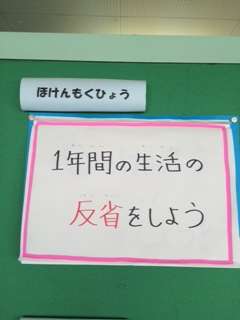 ほけんもくひょう
1年間の生活の
反省をしよう